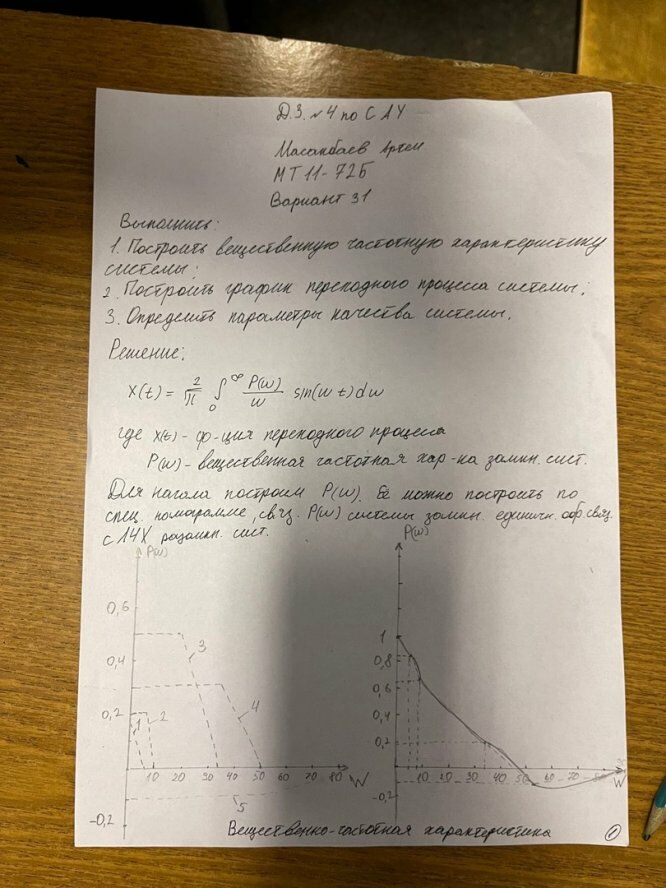 Д.З. №4 по САУ
Масанбаев Артем
МТ11-72Б
Вариант 31
Выполнить:
1. Построить вещественную частотную характеристику
системы;
2. Построить график переходного процесса системы;
3. Определить параметры качества системы.
Решение:
x(t) = 2/π ∫₀^∞ P(w)/w sin(wt)dw
где x(t) - ф-ция переходного процесса
P(w) - вещественная частотная хар-ка замкн. сист.
Для начала построим P(w). Её можно построить по
спец. номарамме, св.щ. P(w) системы замкн. единичн. обр. связ.
с ЛЧХ разомкн. сист.
P(w)
0,6
0,4
0,2
-0,2
1
2
3
4
5
10 20 30 40 50 60 70 80 W
P(w)
1
0,8
0,6
0,4
0,2
-0,2
10 20 30 40 50 60 70 80 W
Вещественно-частотная характеристика
1